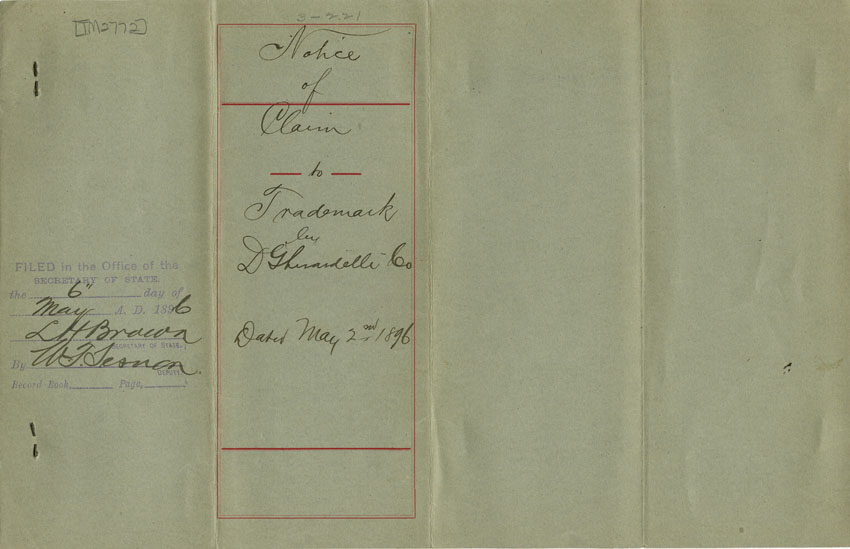 [TM2772]
3-221
Notice
of
Claim
to
Trademark
by
D Ghirardelli Co
Dated May 2nd, 1896
FILED in the Office of the
SECRETARY OF STATE.
the 6" day of
May A. D. 1896
L H Brown
SECRETARY OF STATE.
By W. T. Sesnon.
DEPUTY.
Record Book Page,